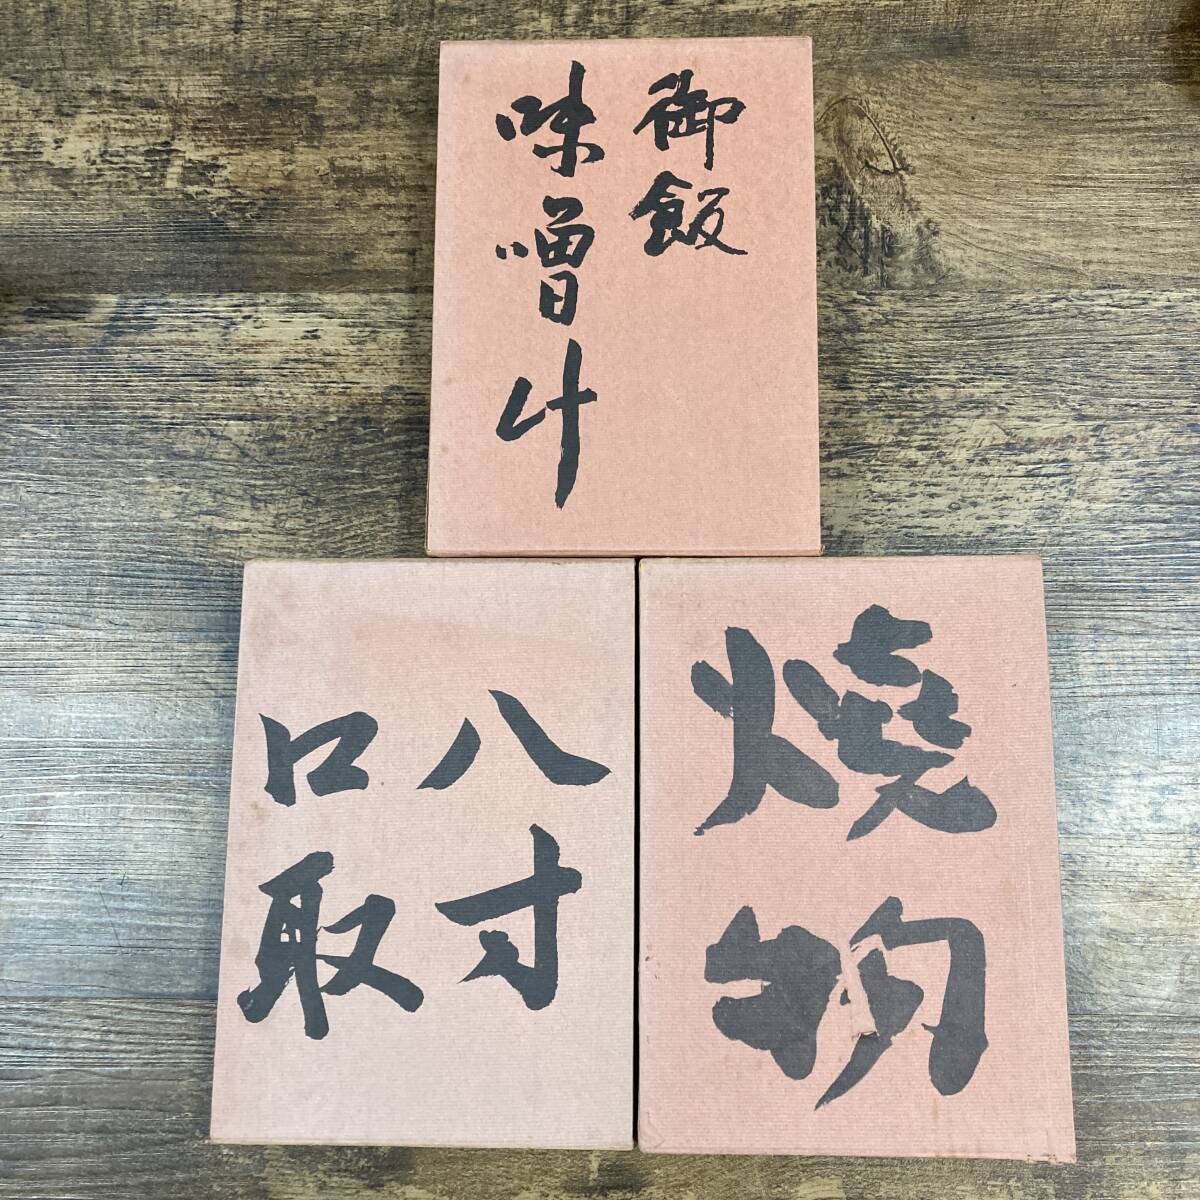 御飯
味噌汁
八寸
口取
焼物